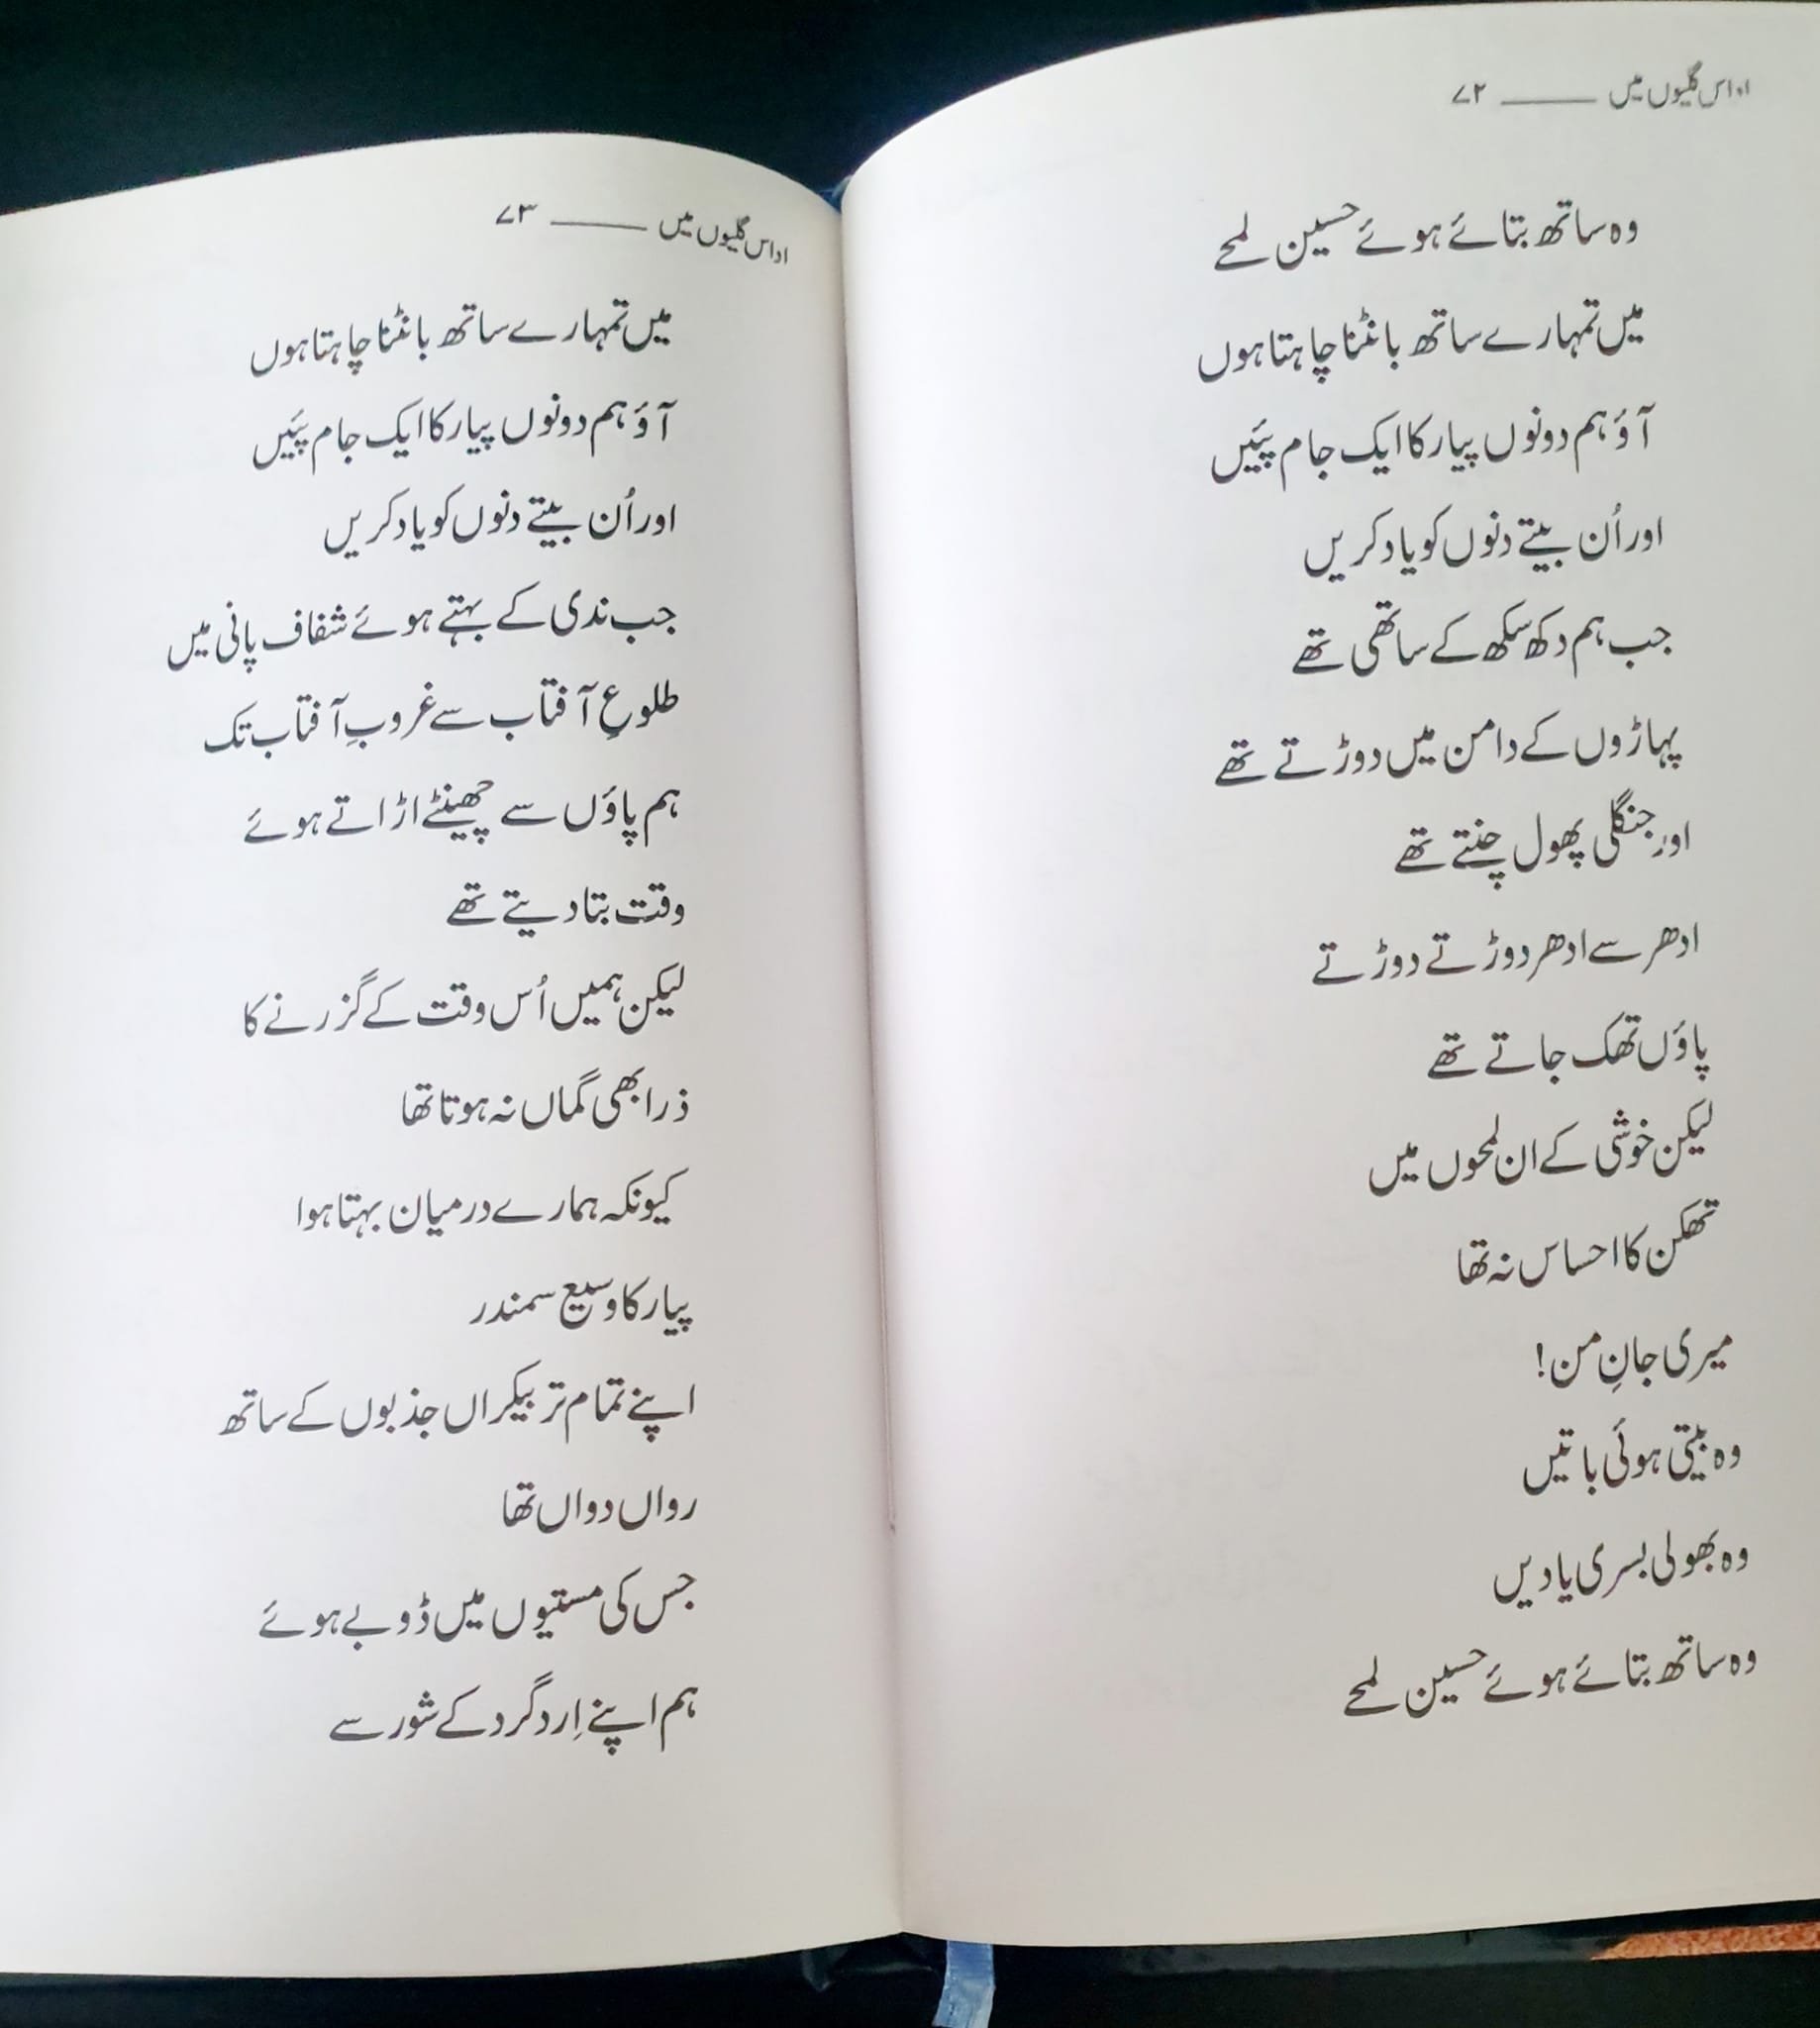 اداس گلیوں میں ——— ۷۲
وہ ساتھ بتائے ہوئے حسین لمحے
میں تمہارے ساتھ بانٹنا چاہتا ہوں
آؤ ہم دونوں پیار کا ایک جام پئیں
اور اُن بیتے دنوں کو یاد کریں
جب ہم دکھ سکھ کے ساتھی تھے
پہاڑوں کے دامن میں دوڑتے تھے
اور جنگلی پھول چنتے تھے
ادھر سے ادھر دوڑتے دوڑتے
پاؤں تھک جاتے تھے
لیکن خوشی کے ان لمحوں میں
تھکن کا احساس نہ تھا
میری جانِ من!
وہ بیتی ہوئی باتیں
وہ بھولی بسری یادیں
وہ ساتھ بتائے ہوئے حسین لمحے
اداس گلیوں میں ——— ۷۳
میں تمہارے ساتھ بانٹنا چاہتا ہوں
آؤ ہم دونوں پیار کا ایک جام پئیں
اور اُن بیتے دنوں کو یاد کریں
جب ندی کے بہتے ہوئے شفاف پانی میں
طلوعِ آفتاب سے غروبِ آفتاب تک
ہم پاؤں سے چھینٹے اڑاتے ہوئے
وقت بتا دیتے تھے
لیکن ہمیں اُس وقت کے گزرنے کا
ذرا بھی گماں نہ ہوتا تھا
کیونکہ ہمارے درمیان بہتا ہوا
پیار کا وسیع سمندر
اپنے تمام تر بیکراں جذبوں کے ساتھ
رواں دواں تھا
جس کی مستیوں میں ڈوبے ہوئے
ہم اپنے اِرد گرد کے شور سے